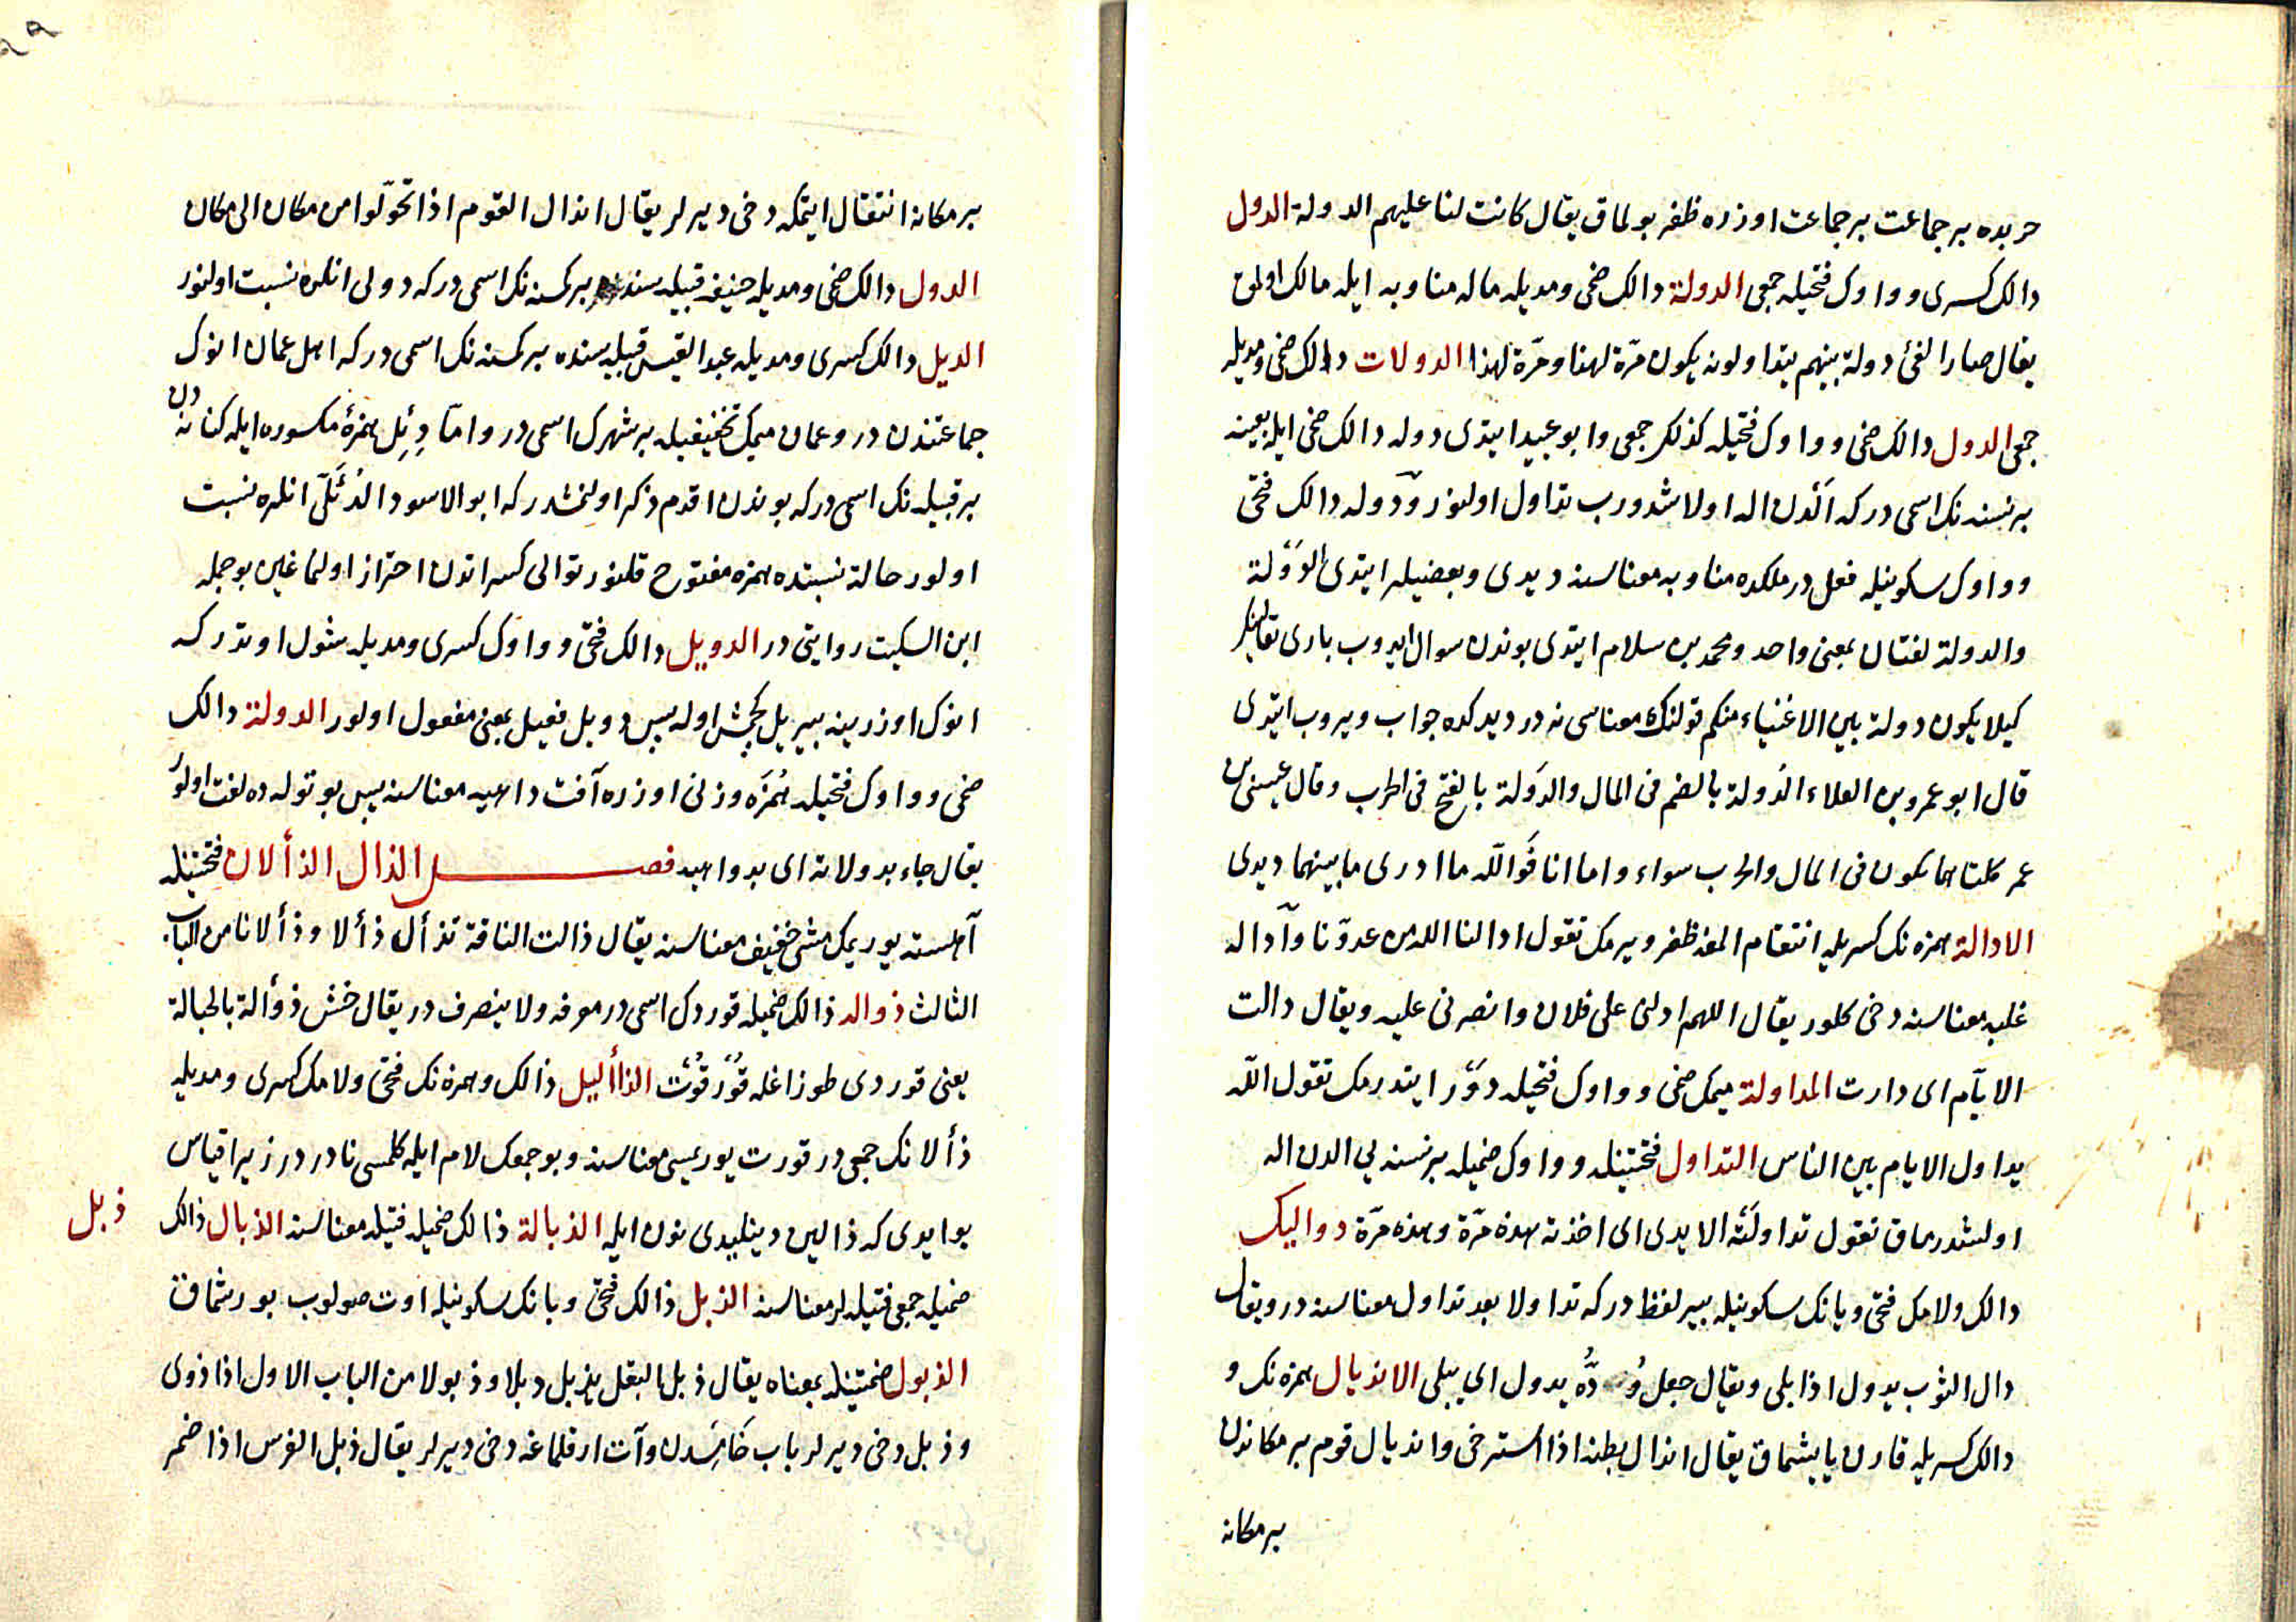 حربده بر جماعت بر جماعت اوزره ظفر بولماق يقال كانت لنا عليهم الدولة الدول
دالك كسرى وواوك فتحيله جمعى الدولة دالك ضمى ومديله ماله مناوبه ايله مالك اولمق
يقال صار الفئ دولة بينهم يتداولونه يكون مرّة لهذا ومرّة لهذا الدولات دالك ضمى ومديله
جمعى الدول دالك ضمى وواوك فتحيله كذلك جمعى وابو عبيد ايتدى دوله دالك ضمى ايله بعينه
بر نسنه نك اسمى دركه الدن اله اولاشدورب تداول اولنور ودوله دالك فتحى
وواوك سكونيله فعل در ملكده مناوبه معناسنه ديدى وبعضيلر ايتدى الدولة
والدولة لغتان بمعنى واحد ومحمد بن سلام ايتدى يوندن سوال ايدوب بارى تعالينك
كيلا يكون دولة بين الاغنياء منكم قولنك معناسى نه در ديدكده جواب ويروب ايتدى
قال ابو عمرو بن العلاء الدُولة بالضم فى المال والدَولة بالفتح فى الحرب وقال عيسى بن
عمر كلتاهما تكون فى المال والحرب سواء واما انا فوالله ما ادرى ما بينهما ديدى
الادالة همزه نك كسريله انتقام المغه ظفر ويرمك تقول ادالنا الله من عدوّنا وادا له
غلبه معناسنه دخى كلور يقال اللهم ادلنى على فلان وانصرنى عليه ويقال دالت
الايّام اى دارت المداولة ميمك ضمى وواوك فتحيله دور ايتدرمك تقول الله
يداول الايام بين الناس التداول فتحتينله وواوك ضميله بر نسنه يى الدن اله
اولشدرماق تقول تداولته الايدى اى اخذته هذه مرّة وهذه مرّة دواليك
دالك ولامك فتحى ويانك سكونيله بير لفظ دركه تداولا بعد تداول معناسنه در ويقال
دال الثوب يدول اذا بلى ويقال جعل ودّه يدول اى يبلى الانديال همزه نك و
دالك كسريله قارن يابيشماق يقال اندال بطنه اذا استرخى وانديال قوم بر مكاندن
بر مكانه
بر مكانه انتقال ايتمكه دخى ديرلر يقال اندال القوم اذا تحوّلوا من مكان الى مكان
الدول دالك ضمى ومديله حنيفه قبيله سنده بر كمسنه نك اسمى دركه دولى انلره نسبت اولنور
الديل دالك كسرى ومديله عبد القيس قبيله سنده بر كمسنه نك اسمى دركه اهل عمان انوك
جماعتندن در وعمان ميمك تخفيفيله بر شهرك اسمى در وامّا دِئِل همزهٔ مكسوره ايله كنانه دن
بر قبيله نك اسمى دركه بوندن اقدم ذكر اولنمشدر كه ابو الاسود الدُئَلىّ انلره نسبت
اولور حالة نسبتده همزه مفتوح قلنور توالى كسراتدن احتراز اولنماغين بو جمله
ابن السكيت روايتى در الدويل دالك فتحى وواوك كسرى ومديله شول اوتدر كه
انوك اوزرينه بير ييل كچمش اوله پس دويل فعيل بمعنى مفعول اولور الدولة دالك
ضمى وواوك فتحيله هُمَزَه وزنى اوزره آفت داهيه معناسنه پس بو تؤله ده لغت اولور
يقال جاء بدولاته اى بدواهيه فصل الذال الذألان فتحتينله
آهسته يوريمك مشى خفيف معناسنه يقال ذالت الناقة تذأل ذألا وذألانا من الباب
الثالث ذواله ذالك ضميله قوردك اسمى در معرفه ولا ينصرف در يقال خشّ ذؤالة بالحبالة
يعنى قوردى طوزاغله قورقوت الذاأليل ذالك وهمزه نك فتحى ولامك كسرى ومديله
ذألانك جمعى در قورت يوريسى معناسنه وبو جمعك لام ايله كلمسى نادر در زيرا قياس
بو ايدى كه ذالين دينليدى نون ايله الذبالة ذالك ضميله فتيله معناسنه الذبال ذالك
ذبل
ضميله جمعى فتيله لر معناسنه الذبل ذالك فتحى وبانك سكونيله اوت صولوب بورشماق
الذبول ضمتينله بمعناه يقال ذبل البقل يذبل ذبلا وذبولا من الباب الاول اذا ذوى
وذبل دخى ديرلر باب خامسدن وآت ارقلماغه دخى ديرلر يقال ذبل الفرس اذا ضمر